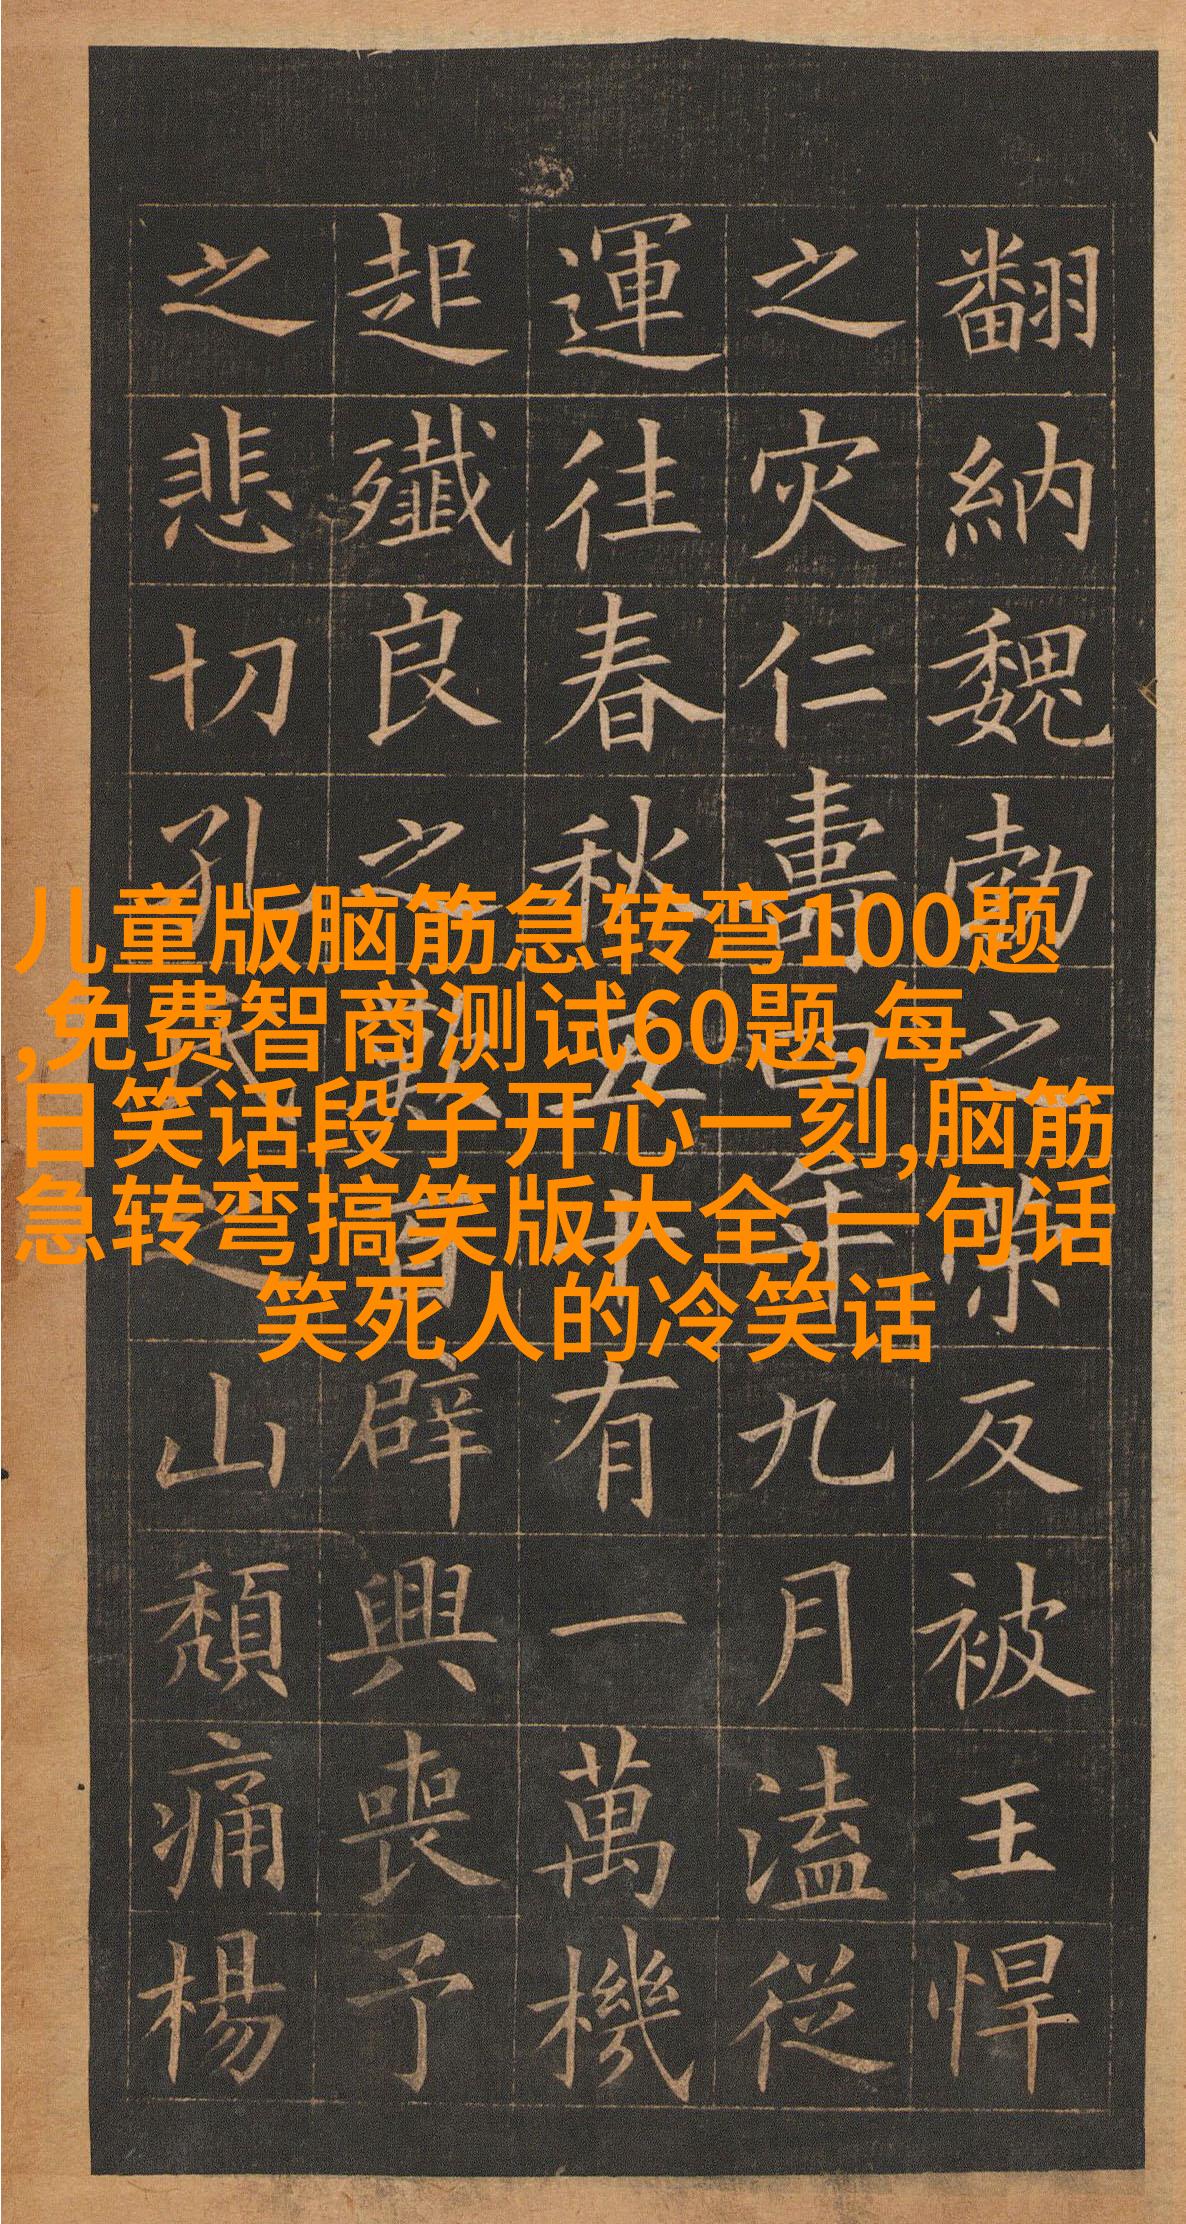 翻納魏勃之反被王悍
之灾仁壽四年九月溘從
運往春秋五十有一萬機
起殲良之歎百辟興喪予
之悲切孔氏之山頹痛楊
儿童版脑筋急转弯100题
,免费智商测试60题,每
日笑话段子开心一刻,脑筋
急转弯搞笑版大全,一句话
笑死人的冷笑话